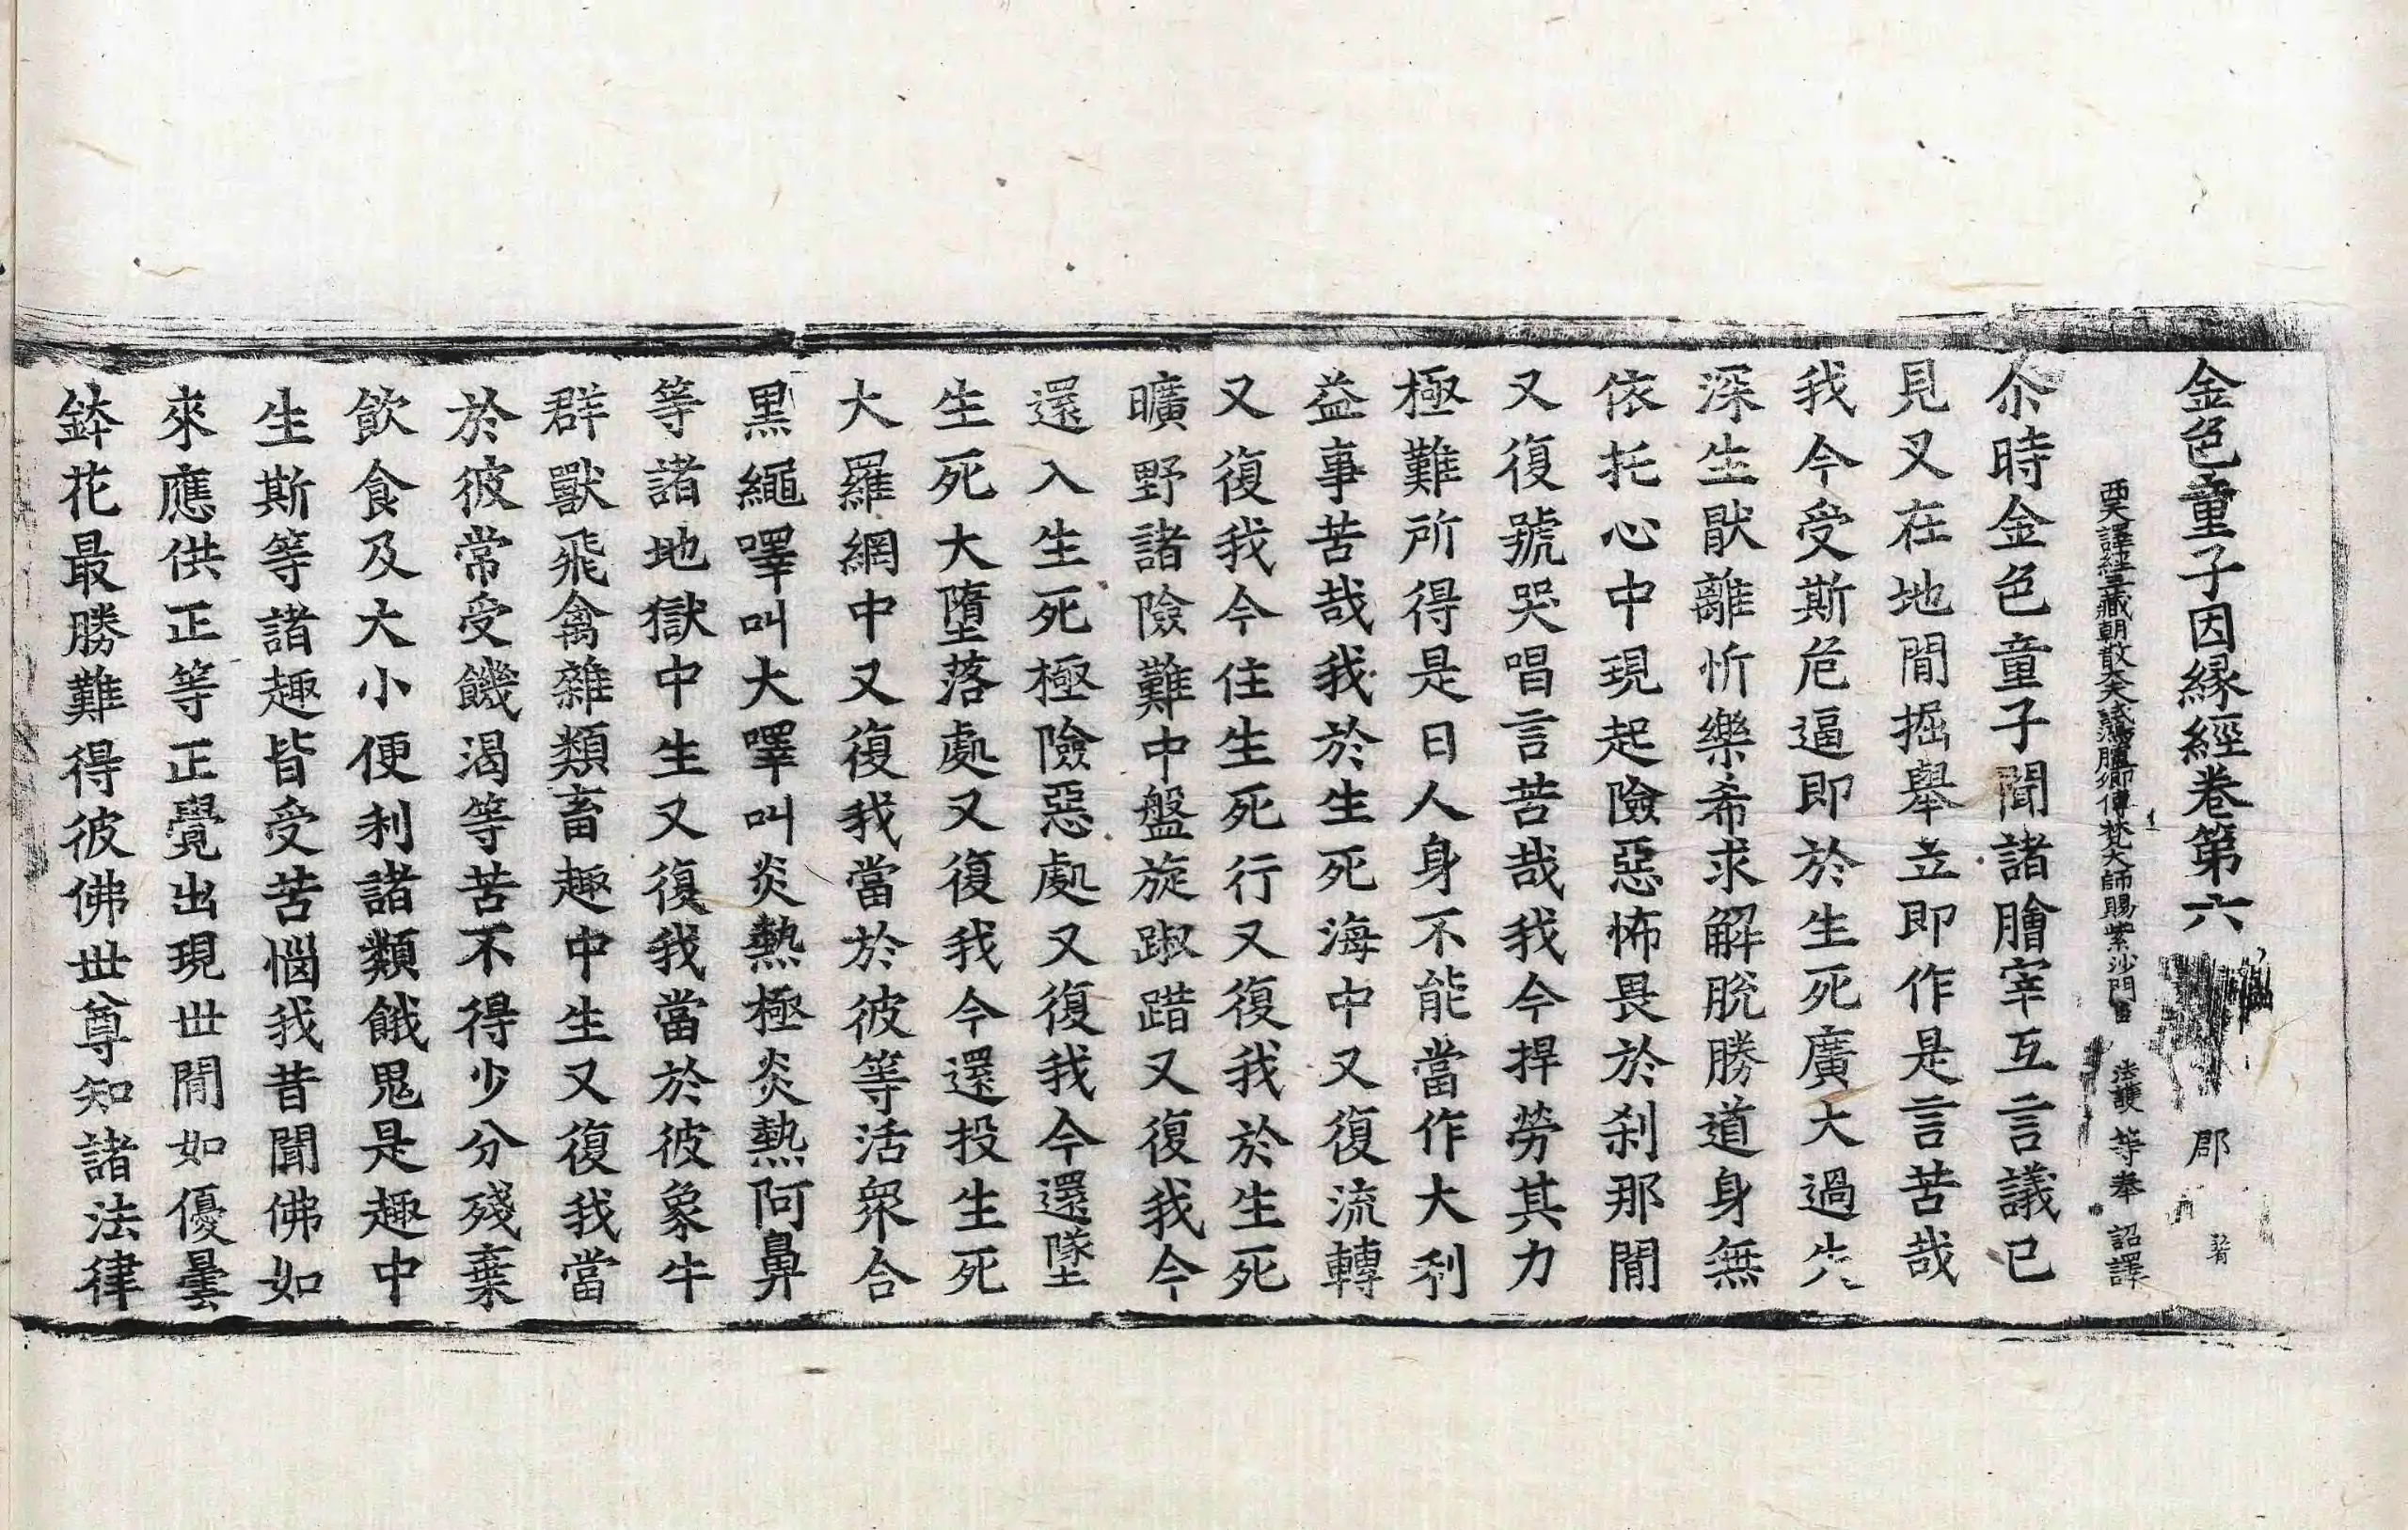 金色童子因緣經卷第六 郡
西天譯經三藏朝散大夫試鴻臚卿傳梵大師賜紫沙門臣 法護 等奉 詔譯
尒時金色童子聞諸膾宰互言議已
見叉在地閒掘舉立即作是言苦哉
我今受斯危逼即於生死廣大過失
深生猒離忻樂希求解脫勝道身無
依托心中現起險惡怖畏於刹那閒
又復號哭唱言苦哉我今捍勞其力
極難所得是日人身不能當作大利
益事苦哉我於生死海中又復流轉
又復我今住生死行又復我於生死
曠野諸險難中盤旋踧踖又復我今
還入生死極險惡處又復我今還墜
生死大墮落處又復我今還投生死
大羅網中又復我當於彼等活衆合
黑繩嘷叫大嘷叫炎熱極炎熱阿鼻
等諸地獄中生又復我當於彼象牛
群獸飛禽雜類畜趣中生又復我當
於彼常受饑渴等苦不得少分殘棄
飲食及大小便利諸類餓鬼是趣中
生斯等諸趣皆受苦惱我昔聞佛如
來應供正等正覺出現世閒如優曇
鉢花最勝難得彼佛世尊知諸法律